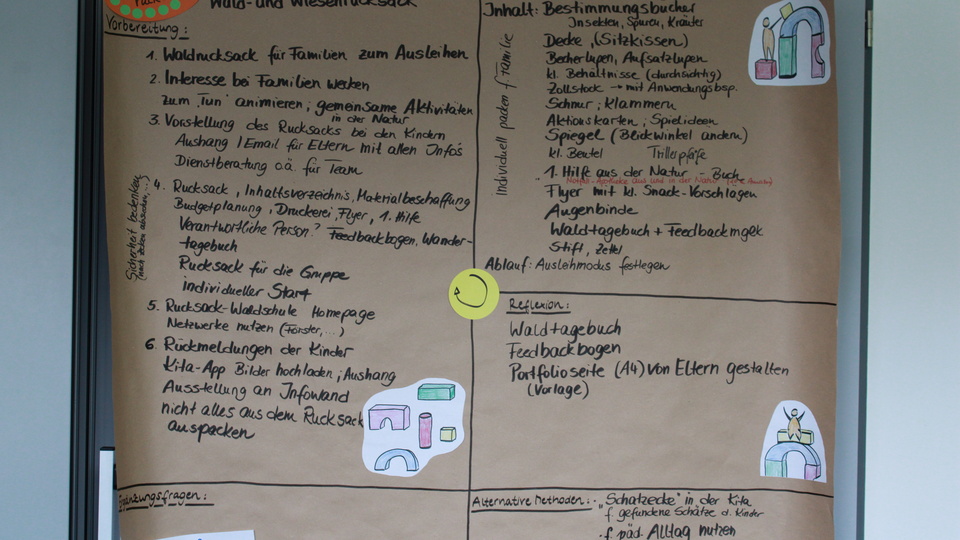 Wald- und Wiesenrucksack
Vorbereitung:
1. Waldrucksack für Familien zum Ausleihen
2. Interesse bei Familien wecken
zum "Tun" animieren, gemeinsame Aktivitäten
in der Natur
3. Vorstellung des Rucksacks bei den Kindern
Aushang / Email für Eltern mit allen Info's
Dienstberatung o.ä. für Team
4. Rucksack, Inhaltsverzeichnis, Materialbeschaffung
Budgetplanung, Druckerei, Flyer, 1. Hilfe
Verantwortliche Person? Feedbackbogen, Wander-
tagebuch
Rucksack für die Gruppe
individueller Start
Sicherheit bedenken
5. Rucksack-Waldschule Homepage
Netzwerke nutzen (Förster,...)
6. Rückmeldungen der Kinder
Kita-App Bilder hochladen, Aushang
Ausstellung an Infowand
nicht alles aus dem Rucksack
auspacken
Ergänzungsfragen:
Inhalt: Bestimmungsbücher
Insekten, Spuren, Kräuter
Decke, (Sitzkissen)
Becherlupen, Aufsatzlupen
kl. Behältnisse (durchsichtig)
Zollstock → mit Anwendungsbsp.
Schnur, Klammern
Aktionskarten, Spielideen
Spiegel (Blickwinkel ändern)
kl. Beutel Trillerpfeife
1. Hilfe aus der Natur - Buch
Flyer mit kl. Snack-Vorschlägen
Augenbinde
Waldtagebuch + Feedbackmgek
Stift, Zettel
Individuell packen f. Familie
Ablauf: Auslehmodus festlegen
Reflexion:
Waldtagebuch
Feedbackbogen
Portfolioseite (A4) von Eltern gestalten
(Vorlage)
Alternative Methoden: · "Schatzecke" in der Kita
f. gefundene Schätze d. Kinder
· f. päd. Alltag nutzen